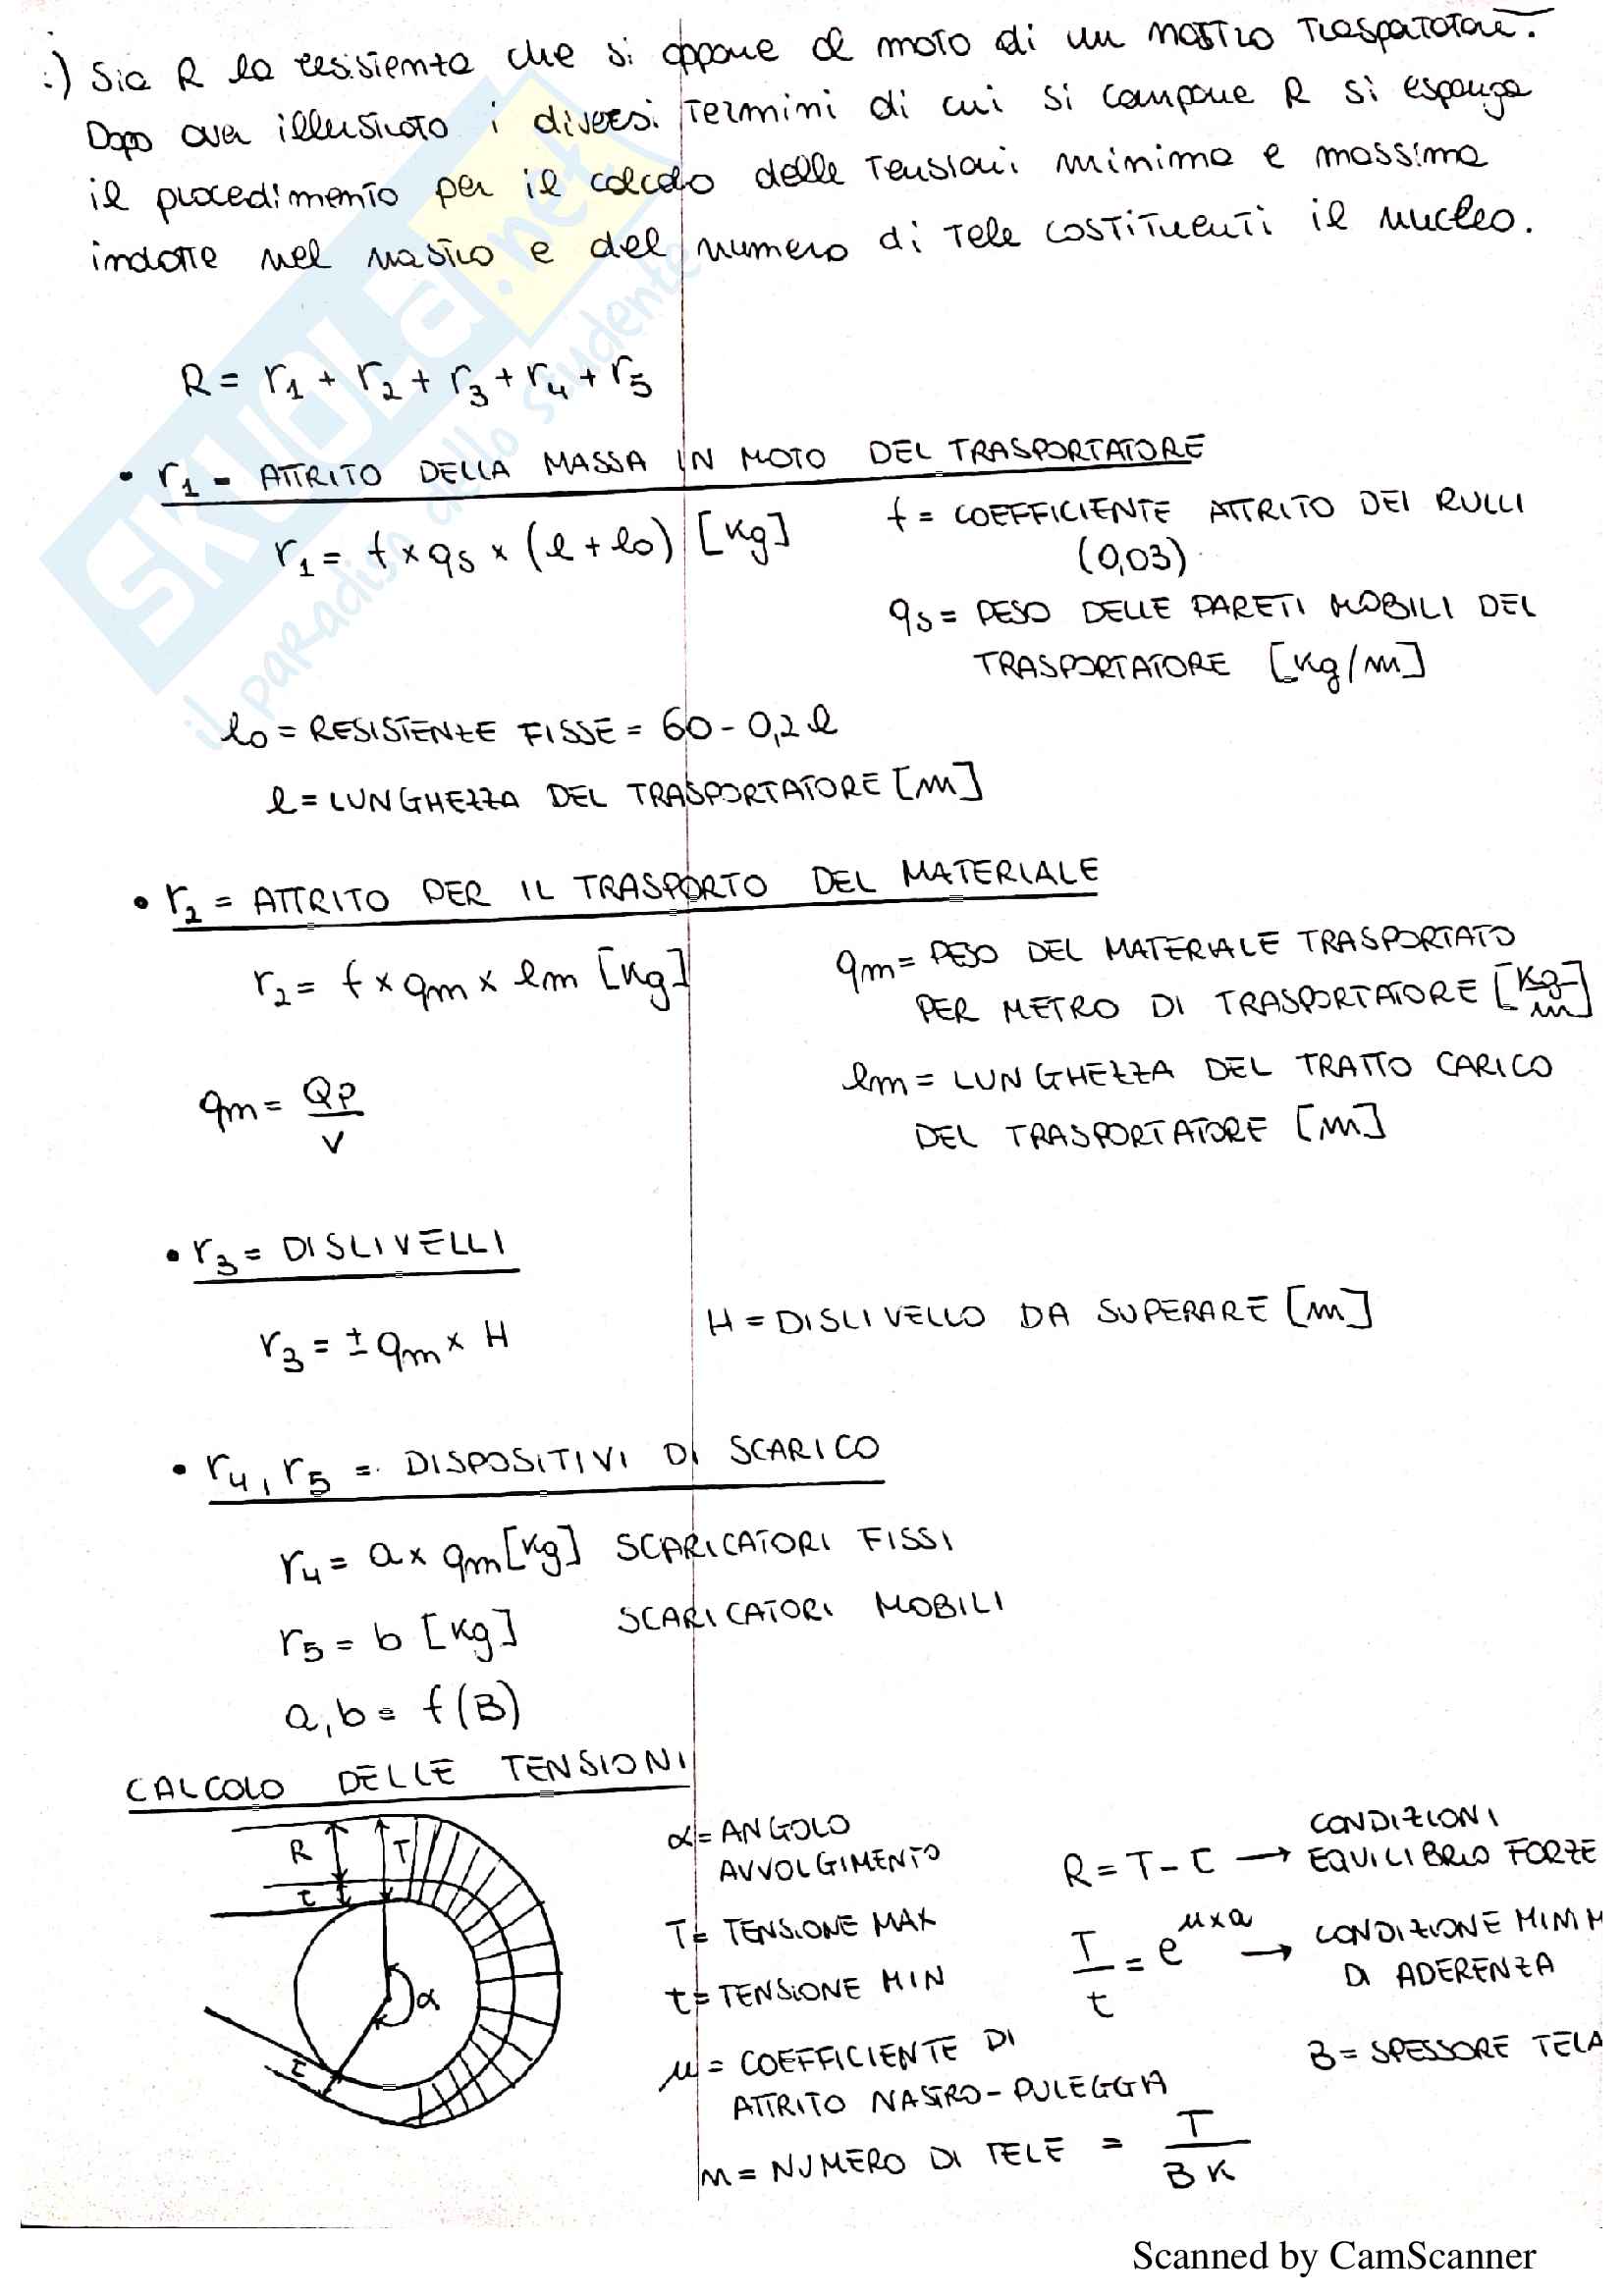 :) Sia R la resistenza che si oppone al moto di un nastro trasportatore.
Dopo aver illustrato i diversi termini di cui si compone R si esponga
il procedimento per il calcolo delle tensioni minima e massima
indotte nel nastro e del numero di tele costituenti il nucleo.
SKUOLA.net
il paradiso dello studente
R = r1 + r2 + r3 + r4 + r5
• r1 = ATTRITO DELLA MASSA IN MOTO DEL TRASPORTATORE
r1 = f × qs × (l + lo) [Kg]
f = COEFFICIENTE ATTRITO DEI RULLI
(0,03)
qs = PESO DELLE PARETI MOBILI DEL
TRASPORTATORE [Kg/m]
lo = RESISTENZE FISSE = 60 - 0,2 l
l = LUNGHEZZA DEL TRASPORTATORE [m]
• r2 = ATTRITO PER IL TRASPORTO DEL MATERIALE
r2 = f × qm × lm [Kg]
qm = PESO DEL MATERIALE TRASPORTATO
PER METRO DI TRASPORTATORE [Kg/m]
qm = Qp / v
lm = LUNGHEZZA DEL TRATTO CARICO
DEL TRASPORTATORE [m]
• r3 = DISLIVELLI
r3 = ± qm × H
H = DISLIVELLO DA SUPERARE [m]
• r4, r5 = DISPOSITIVI DI SCARICO
r4 = a × qm [Kg] SCARICATORI FISSI
r5 = b [Kg] SCARICATORI MOBILI
a, b = f (B)
CALCOLO DELLE TENSIONI
R T
t
α
t
α = ANGOLO
AVVOLGIMENTO
T = TENSIONE MAX
t = TENSIONE MIN
μ = COEFFICIENTE DI
ATTRITO NASTRO-PULEGGIA
m = NUMERO DI TELE = T / B K
R = T - t → CONDIZIONI
EQUILIBRIO FORZE
T / t = e^μ×α → CONDIZIONE MINIM
DI ADERENZA
B = SPESSORE TELA
Scanned by CamScanner